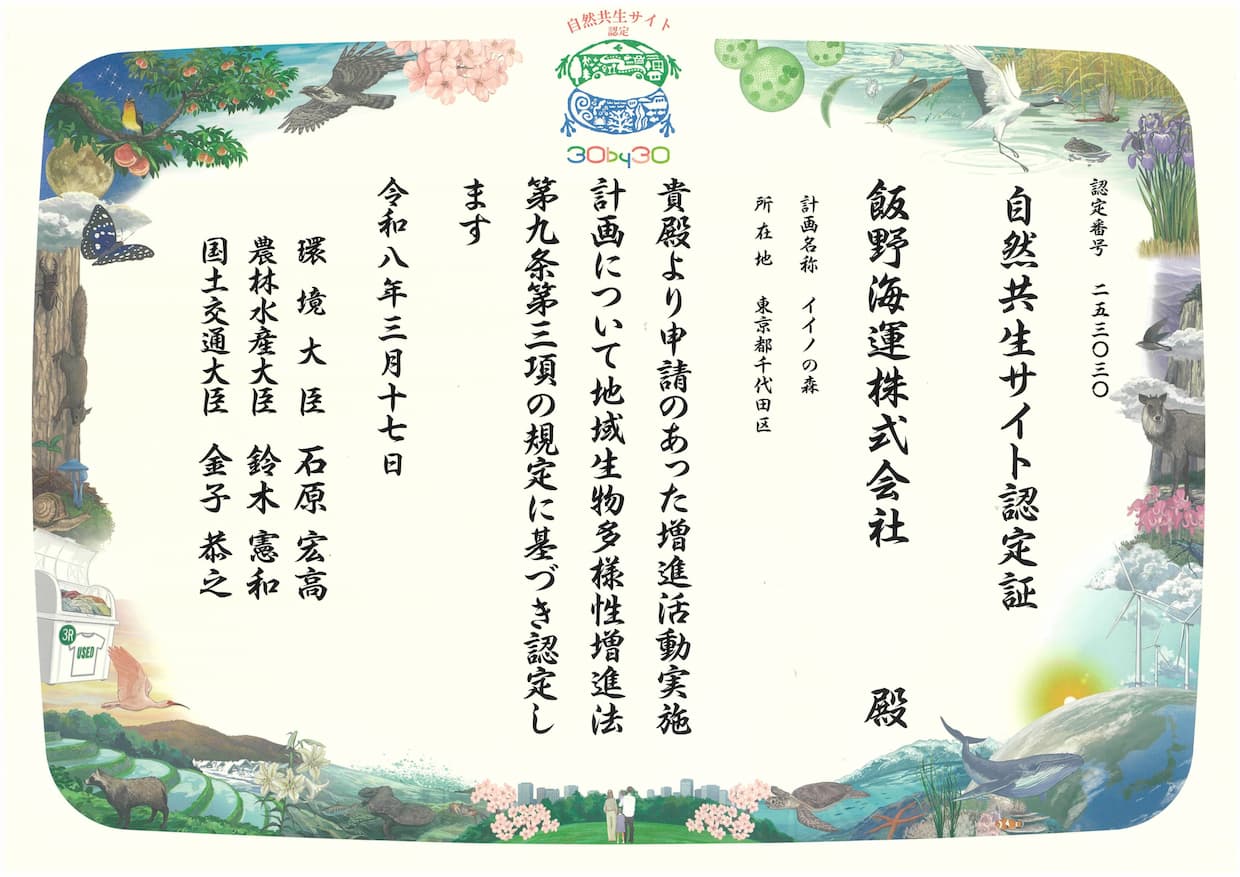 自然共生サイト
認定
30by30
認定番号 二五三〇三〇
自然共生サイト認定証
飯野海運株式会社 殿
計画名称 イイノの森
所在地 東京都千代田区
貴殿より申請のあった増進活動実施
計画について地域生物多様性増進法
第九条第三項の規定に基づき認定し
ます
令和八年三月十七日
環境大臣 石原 宏高
農林水産大臣 鈴木 憲和
国土交通大臣 金子 恭之
3R
USED